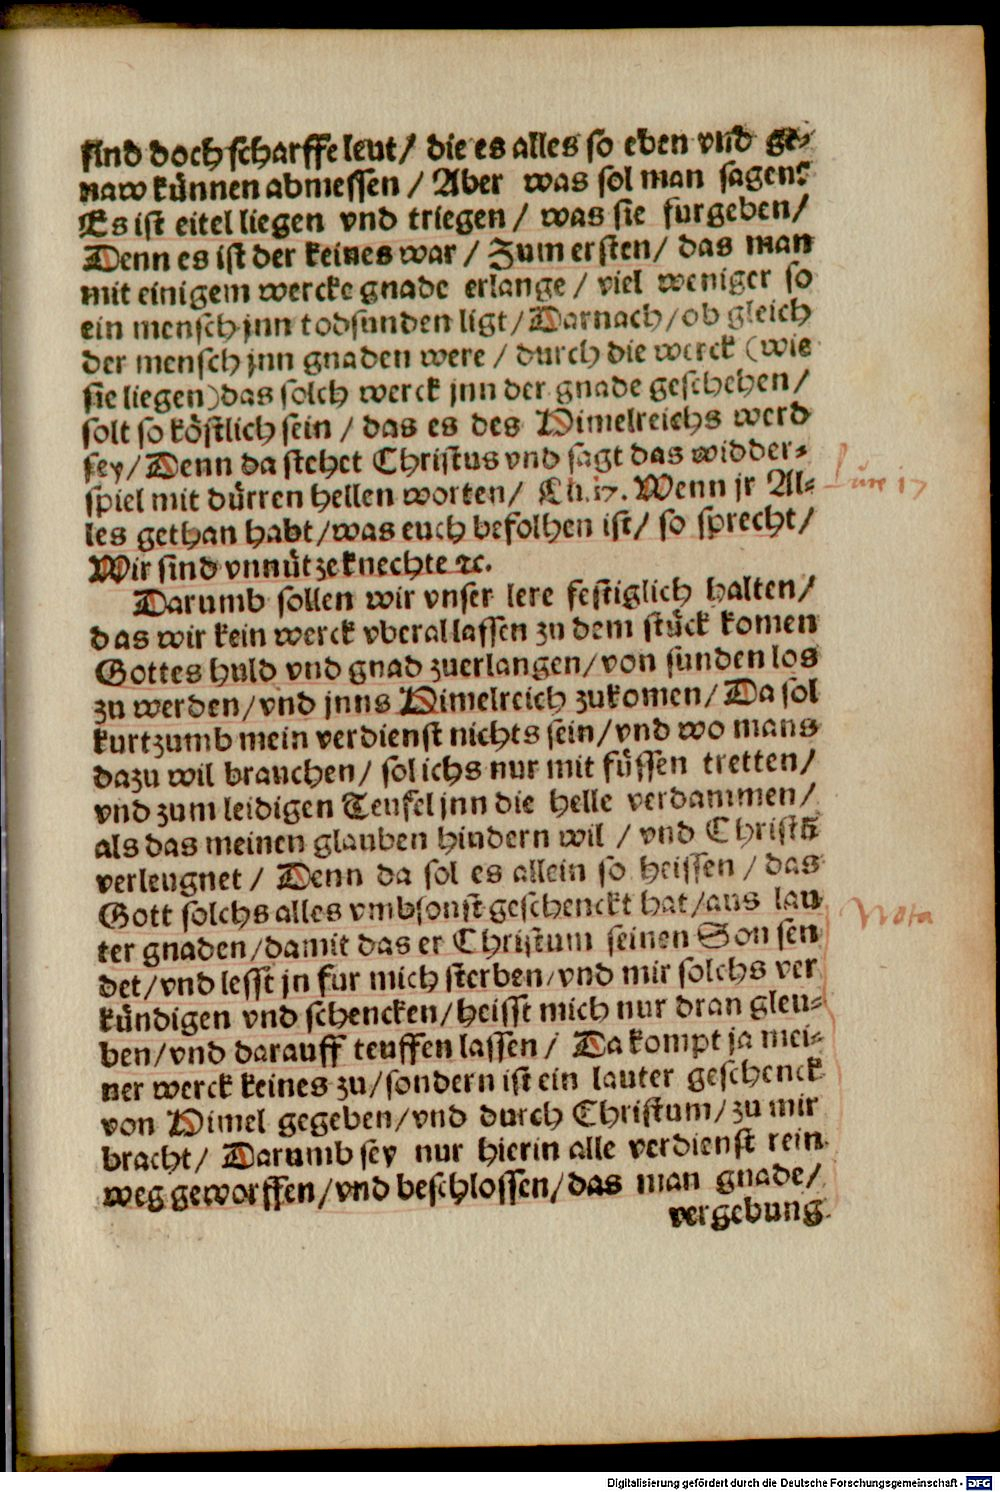 sind doch scharffe leut/ die es alles so eben vnd ge-
naw künnen abmessen / Aber was sol man sagen?
Es ist eitel liegen vnd triegen / was sie furgeben/
Denn es ist der keines war / Zum ersten/ das man
mit einigem wercke gnade erlange / viel weniger so
ein mensch jnn todsunden ligt/ Darnach/ob gleich
der mensch jnn gnaden were / durch die werck (wie
sie liegen) das solch werck jnn der gnade geschehen/
solt so köstlich sein / das es des Himelreichs werd
sey/ Denn da stehet Christus vnd sagt das widder-
spiel mit dürren hellen worten/ Lu. 17. Wenn jr Al-
les gethan habt/was euch befolhen ist/ so sprecht/
Wir sind vnnütze knechte ꝛc.
Darumb sollen wir vnser lere festiglich halten/
das wir kein werck vberal lassen zu dem stück komen
Gottes huld vnd gnad zuerlangen/von sunden los
zu werden/vnd jnns Himelreich zukomen/ Da sol
kurtzumb mein verdienst nichts sein/vnd wo mans
dazu wil brauchen/ sol ichs nur mit füssen tretten/
vnd zum leidigen Teufel jnn die helle verdammen/
als das meinen glauben hindern wil / vnd Christū
verleugnet / Denn da sol es allein so heissen / das
Gott solchs alles vmbsonst geschenckt hat/aus lau
ter gnaden/damit das er Christum seinen Son sen
det/vnd lesst jn fur mich sterben/vnd mir solchs ver
kündigen vnd schencken/heisst mich nur dran gleu-
ben/vnd darauff teuffen lassen / Da kompt ja mei-
ner werck keines zu/sondern ist ein lauter geschenck
von Himel gegeben/vnd durch Christum/zu mir
bracht/ Darumb sey nur hierin alle verdienst rein
weg geworffen/vnd beschlossen/das man gnade/
vergebung
Luce 17
Nota
Digitalisierung gefördert durch die Deutsche Forschungsgemeinschaft - DFG